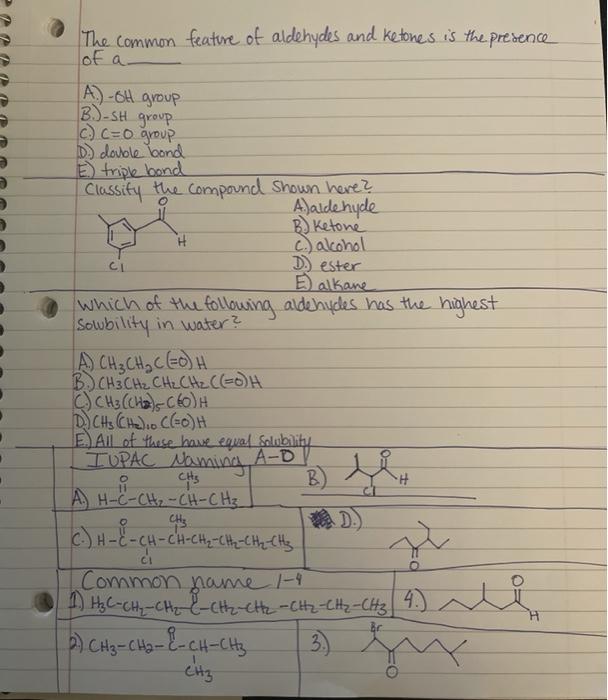 The common feature of aldehydes and ketones is the presence
of a ______
A.) -OH group
B.) -SH group
C.) C=O group
D.) double bond
E.) triple bond
Classify the compound shown here?
O
H
Cl
A.) aldehyde
B.) Ketone
C.) alcohol
D.) ester
E.) alkane
which of the following aldehydes has the highest
solubility in water?
A.) CH3CH2C(=O)H
B.) CH3CH2CH2CH2C(=O)H
C.) CH3(CH2)5-C(=O)H
D.) CH3(CH2)10C(=O)H
E.) All of these have equal solubility
IUPAC Naming A-D
O CH3
A.) H-C-CH2-CH-CH3
B.)
O
H
Cl
O CH3
C.) H-C-CH-CH-CH2-CH2-CH2-CH3
Cl
D.)
O
Common name 1-4
O
1.) H3C-CH2-CH2-C-CH2-CH2-CH2-CH2-CH3
4.)
O
H
O
2.) CH3-CH2-C-CH-CH3
CH3
3.)
Br
O